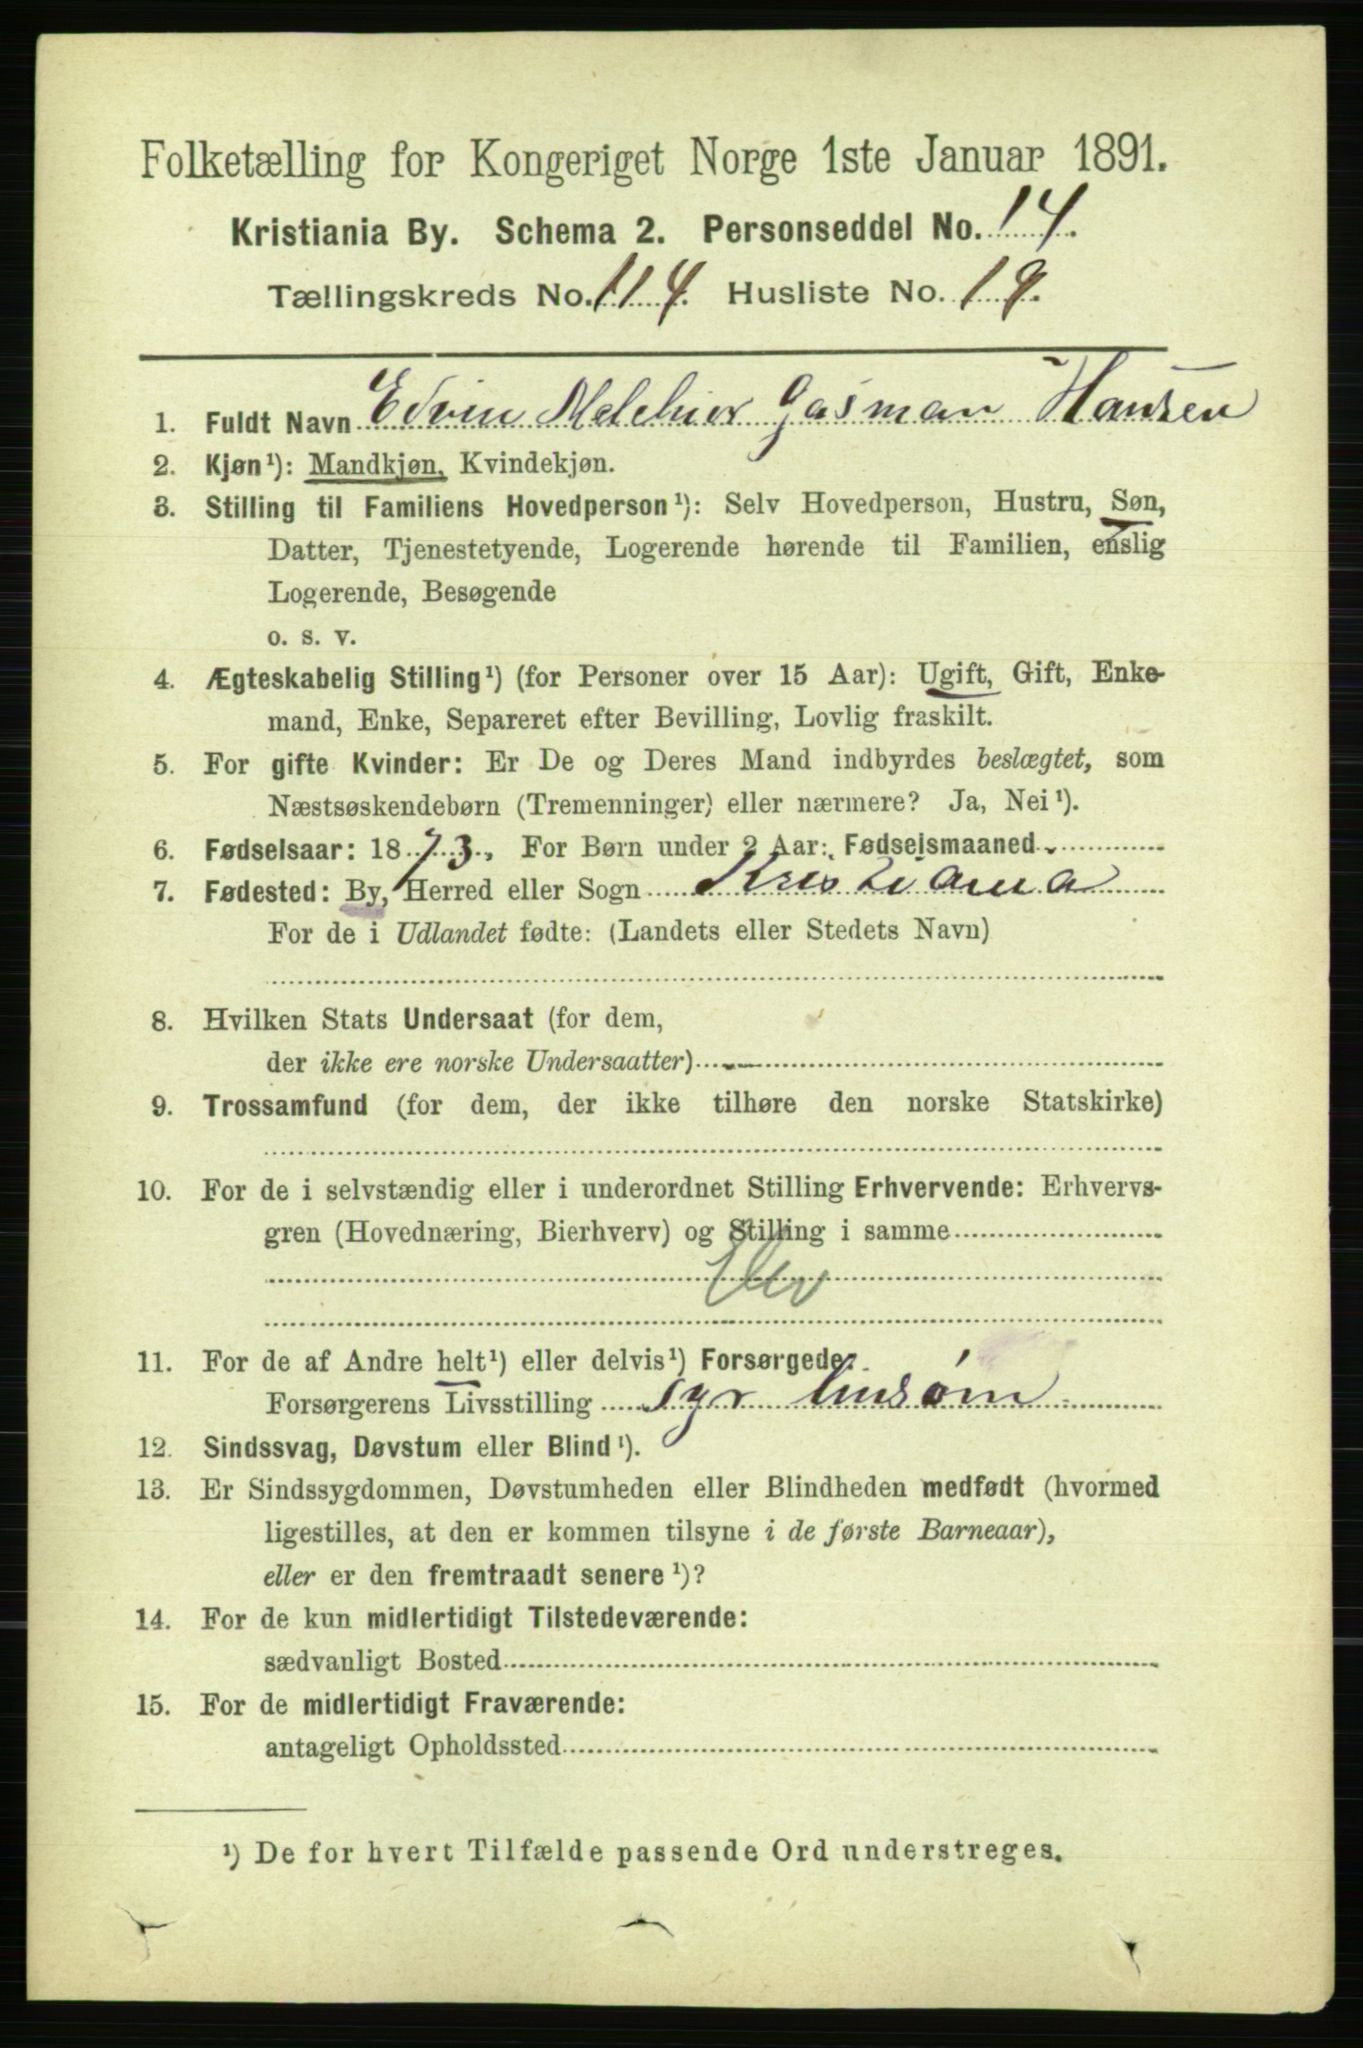 Folketælling for Kongeriget Norge 1ste Januar 1891.
Kristiania By. Schema 2. Personseddel No. 14.
Tællingskreds No. 114. Husliste No. 19.
1. Fuldt Navn Edvin Melchior Gasman Hansen
2. Kjøn¹): Mandkjøn, Kvindekjøn.
3. Stilling til Familiens Hovedperson¹): Selv Hovedperson, Hustru, Søn,
Datter, Tjenestetyende, Logerende hørende til Familien, enslig
Logerende, Besøgende
o. s. v.
4. Ægteskabelig Stilling¹) (for Personer over 15 Aar): Ugift, Gift, Enke-
mand, Enke, Separeret efter Bevilling, Lovlig fraskilt.
5. For gifte Kvinder: Er De og Deres Mand indbyrdes beslægtet, som
Næstsøskendebørn (Tremenninger) eller nærmere? Ja, Nei¹).
6. Fødselsaar: 1873., For Børn under 2 Aar: Fødselsmaaned
7. Fødested: By, Herred eller Sogn Kristiania
For de i Udlandet fødte: (Landets eller Stedets Navn)
8. Hvilken Stats Undersaat (for dem,
der ikke ere norske Undersaatter)
9. Trossamfund (for dem, der ikke tilhøre den norske Statskirke)
10. For de i selvstændig eller i underordnet Stilling Erhvervende: Erhvervs-
gren (Hovednæring, Bierhverv) og Stilling i samme
Elev
11. For de af Andre helt¹) eller delvis¹) Forsørgede:
Forsørgerens Livsstilling
12. Sindssvag, Døvstum eller Blind¹).
13. Er Sindssygdommen, Døvstumheden eller Blindheden medfødt (hvormed
ligestilles, at den er kommen tilsyne i de første Barneaar),
eller er den fremtraadt senere¹)?
14. For de kun midlertidigt Tilstedeværende:
sædvanligt Bosted
15. For de midlertidigt Fraværende:
antageligt Opholdssted
¹) De for hvert Tilfælde passende Ord understreges.